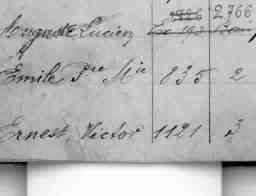 Auguste Lucien 2766
Emile Pre Mie 835 2
Ernest Victor 1121 3